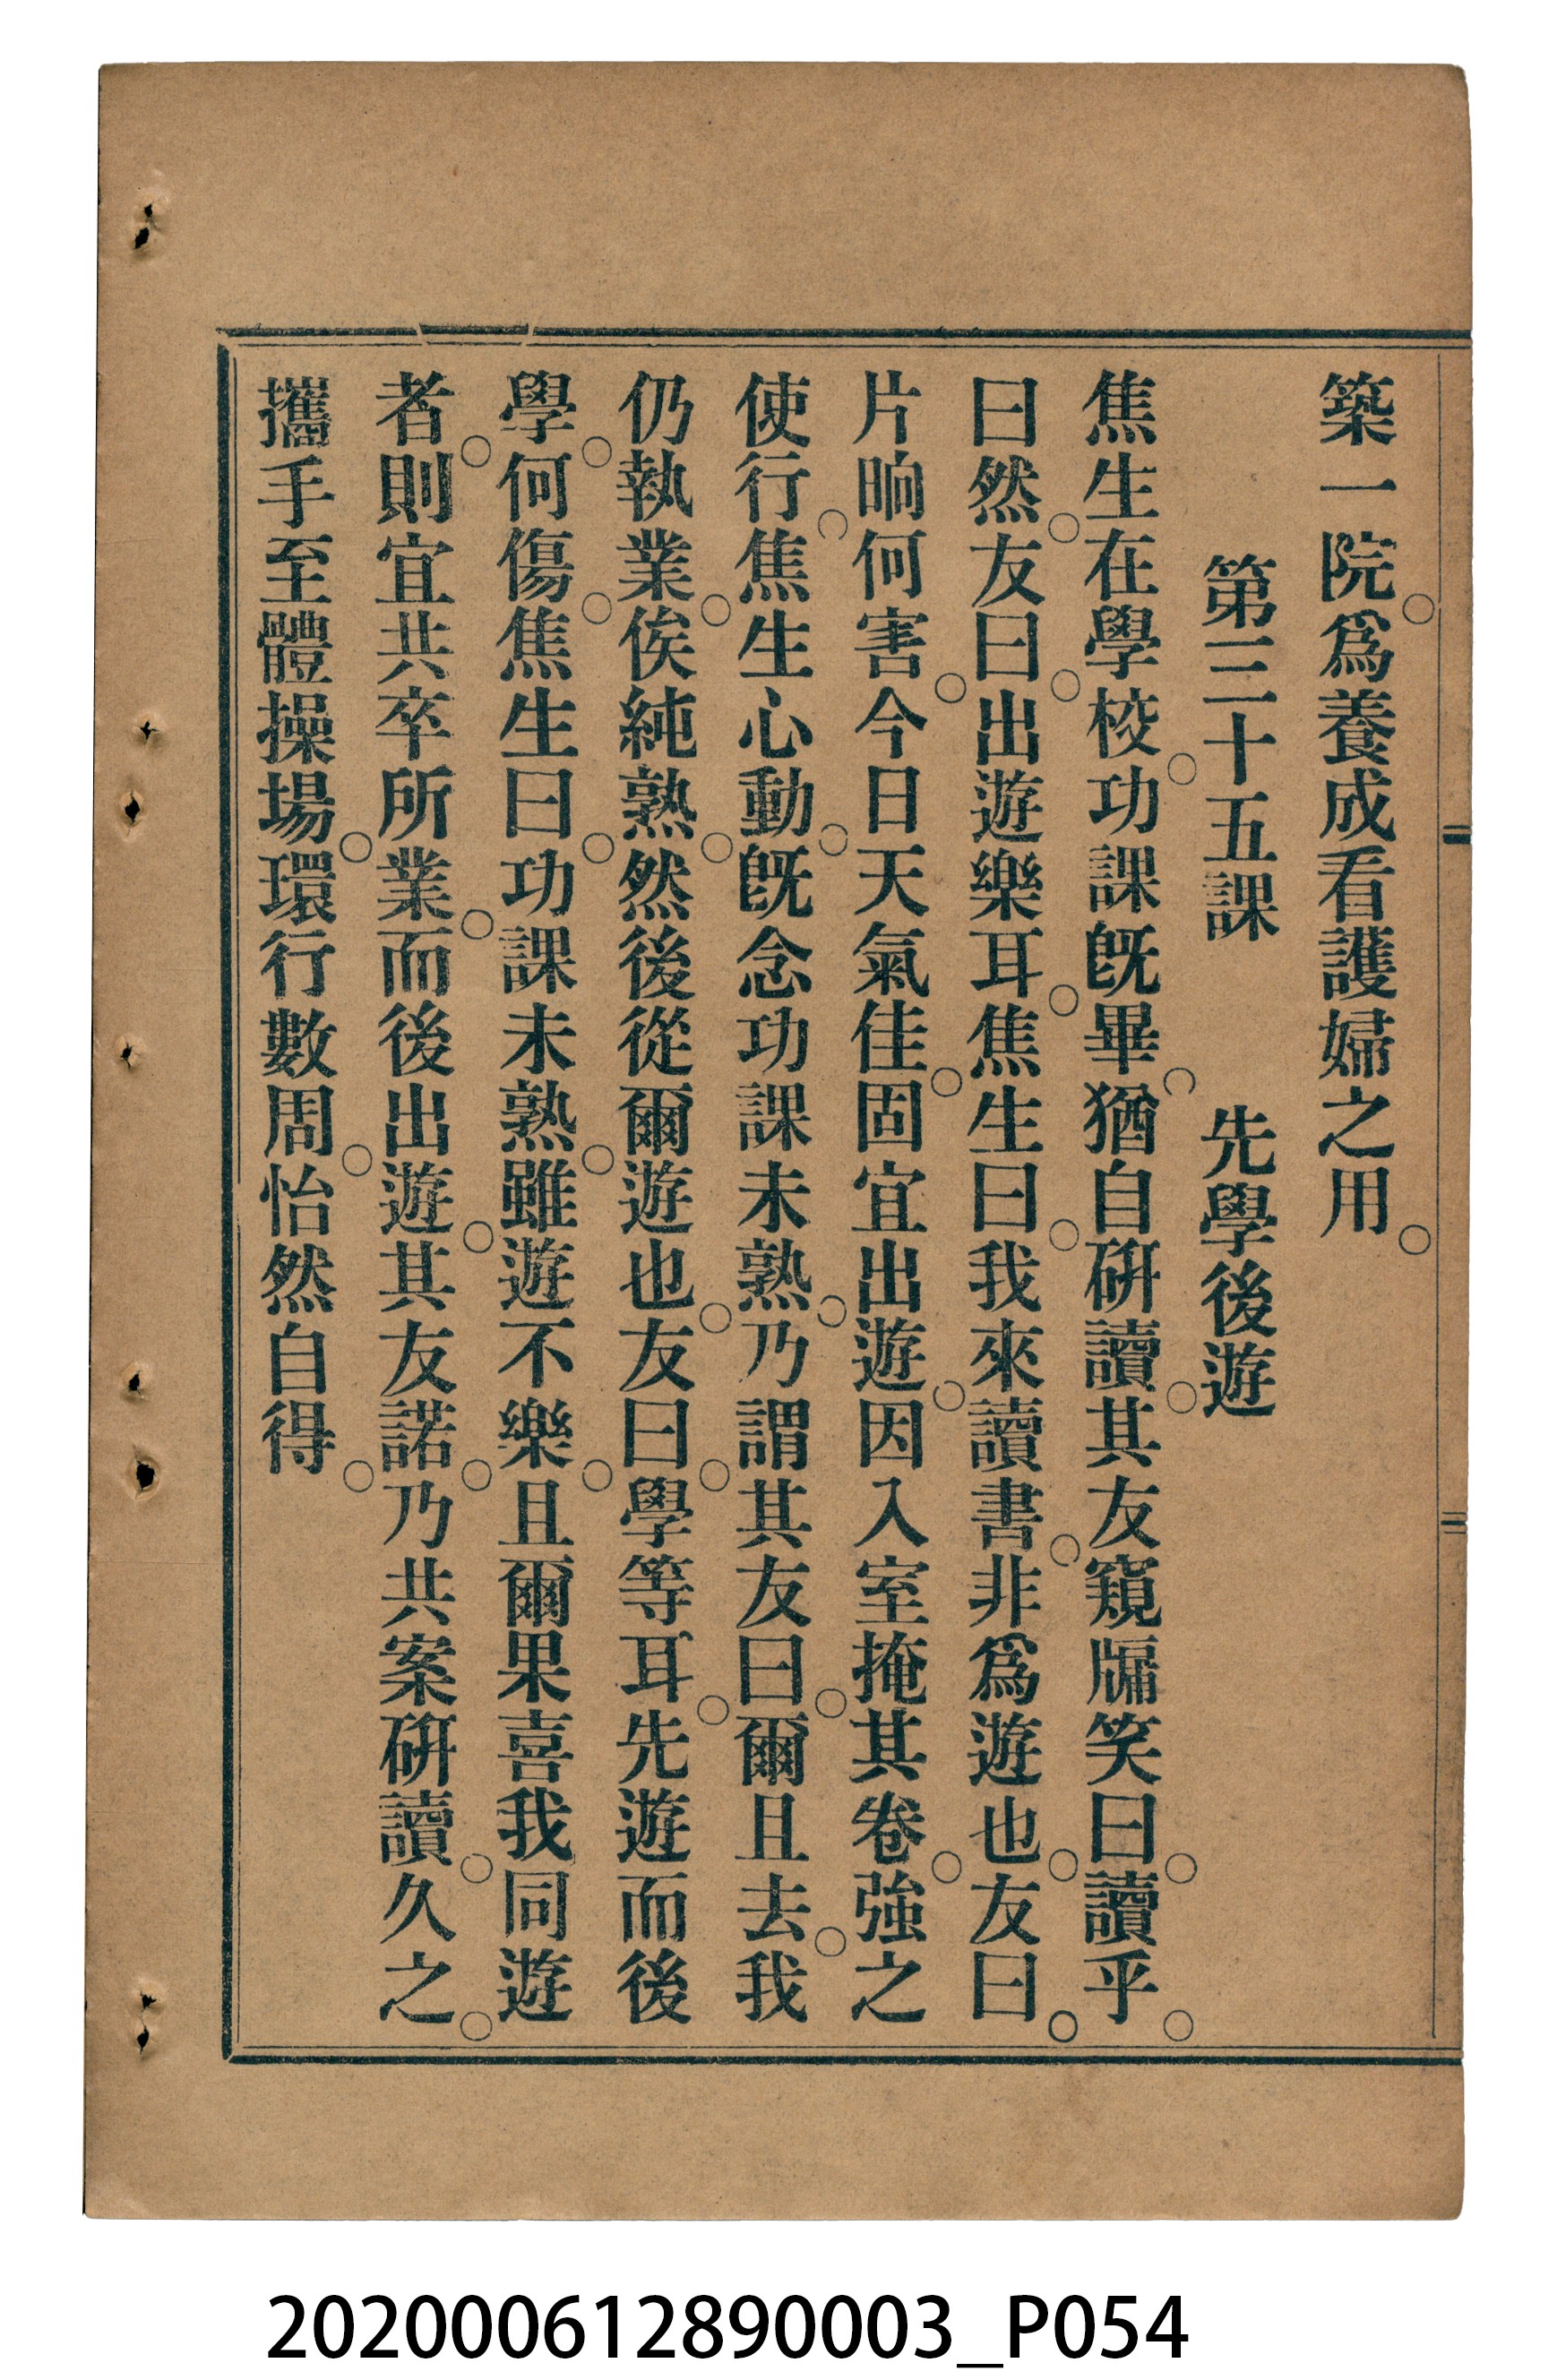 築一院。爲養成看護婦之用。
第三十五課　先學後遊
焦生在學校。功課旣畢。猶自硏讀。其友窺牖笑曰。讀乎。
曰然。友曰。出遊樂耳。焦生曰。我來讀書。非爲遊也。友曰。
片晌何害。今日天氣佳。固宜出遊。因入室掩其卷。強之
使行。焦生心動。旣念功課未熟。乃謂其友曰。爾且去。我
仍執業。俟純熟。然後從爾遊也。友曰。學等耳。先遊而後
學。何傷。焦生曰。功課未熟。雖遊不樂。且爾果喜我同遊
者。則宜共卒所業。而後出遊。其友諾。乃共案硏讀。久之。
攜手至體操場。環行數周。怡然自得。
202000612890003_P054